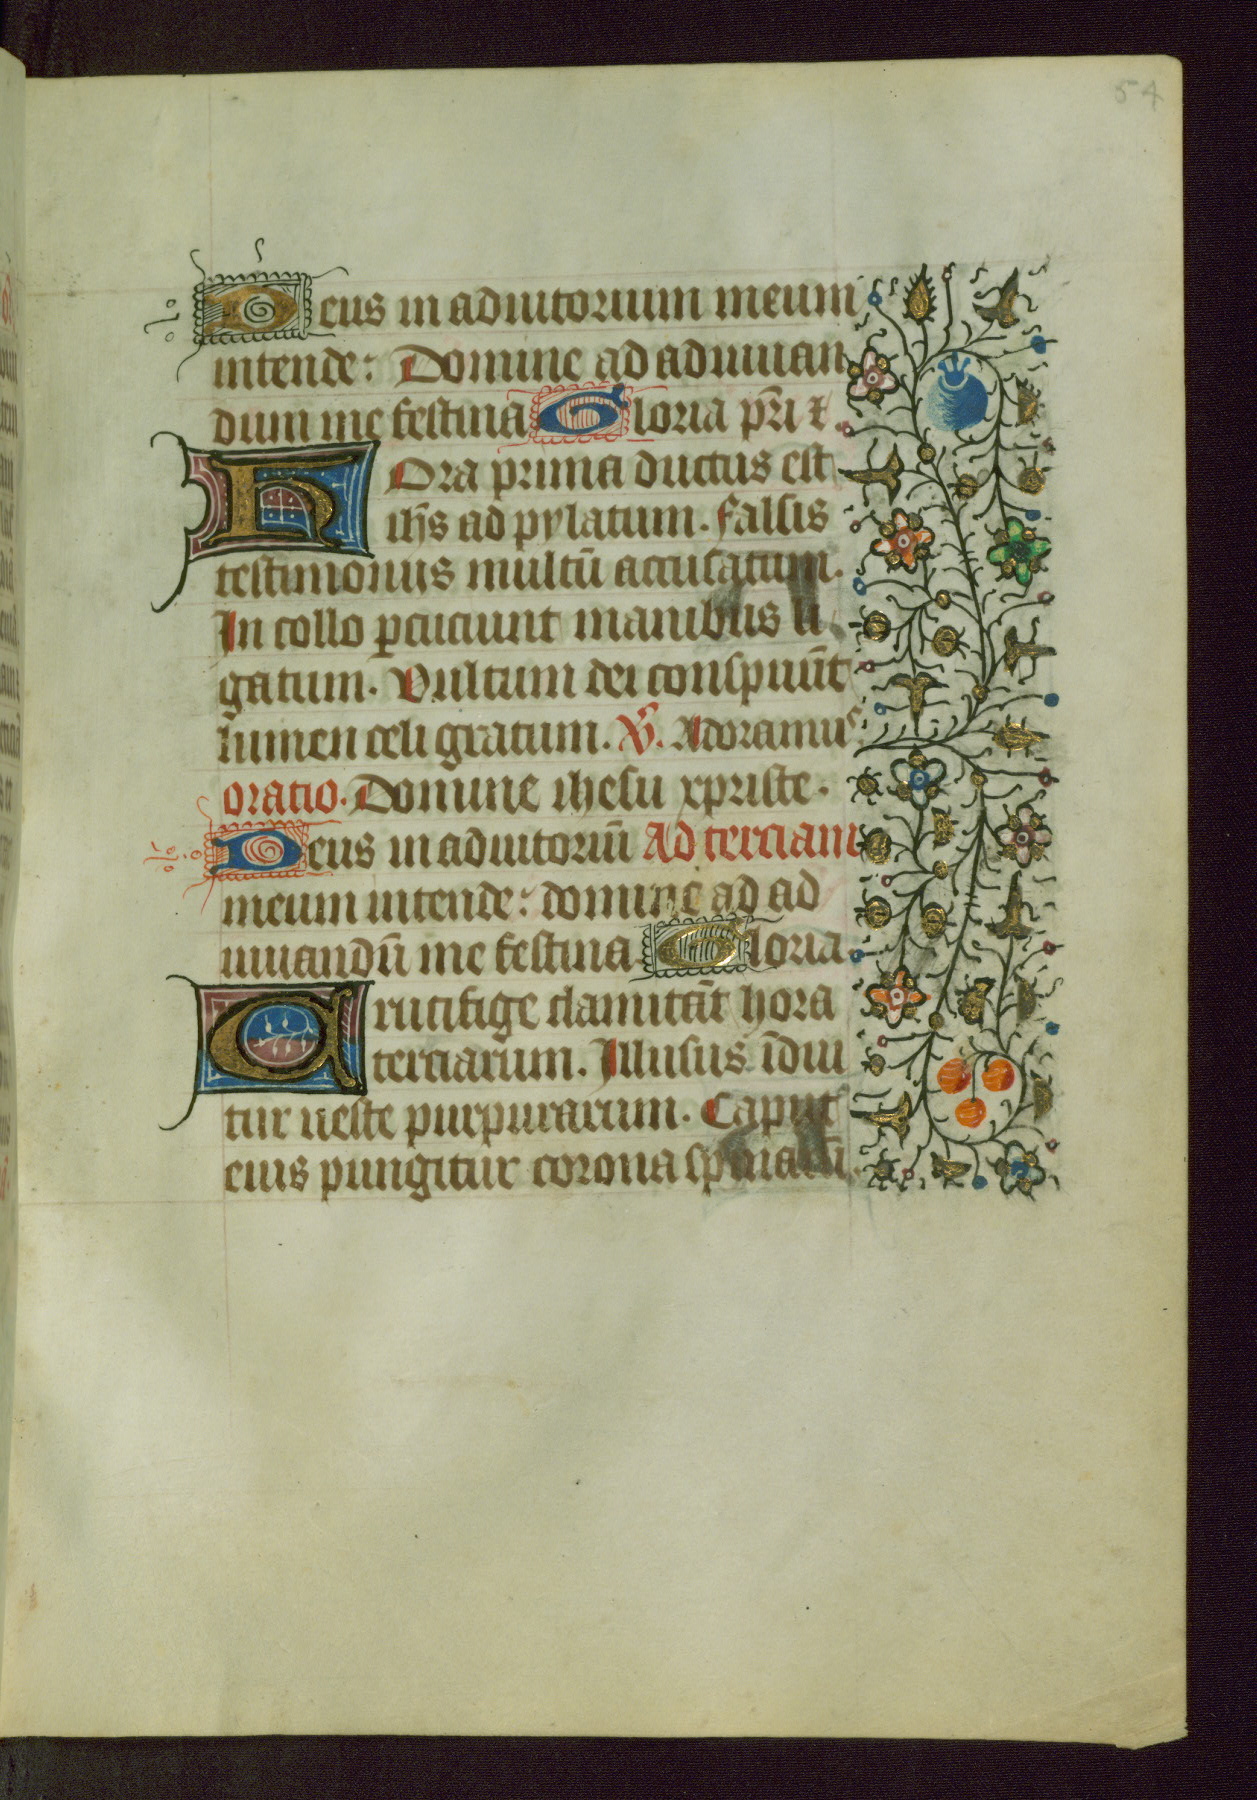 54
Deus in adiutorium meum
intende: Domine ad adiuuan
dum me festina Gloria pr̄i ⁊.
Hora prima ductus est
ih̄s ad pylatum. Falsis
testimoniis multū accusatum.
In collo ꝑcuciunt manibus li
gatum. Vultum dei conspuūt
lumen celi gratum. V̄. Adoramus
oratio. Domine ihesu xpriste.
Deus in adiutoriū Ad terciam
meum intende: domine ad ad
iuuandū me festina Gloria.
Crucifige clamitāt hora
terciarum. Illusus īdui
tur ueste purpurarum. Caput
eius pungitur corona spinarū.